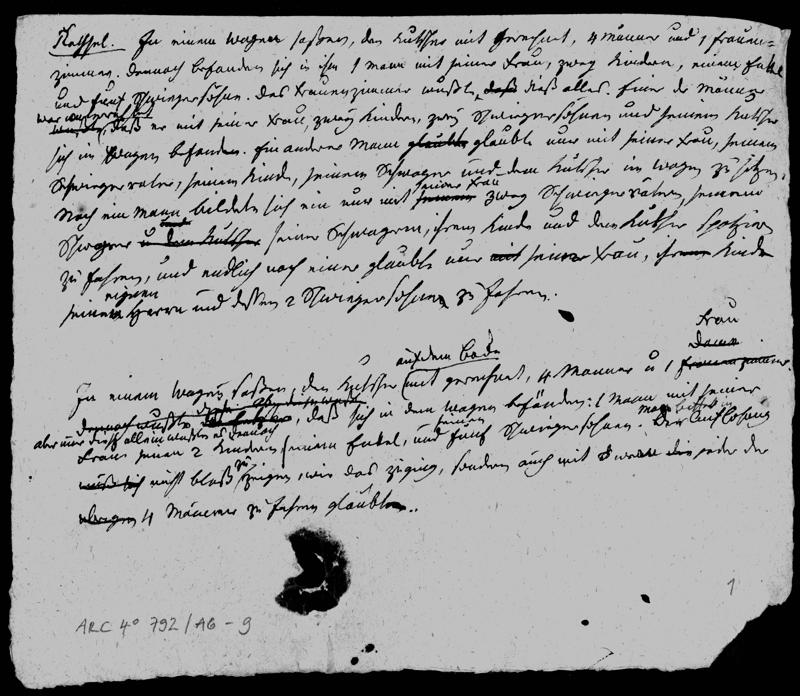 Räthsel. In einem Wagen saßen, den Kutscher mit gerechnet, 4 Männer und 1 Frauen=
zimmer. Dennoch befanden sich in ihm 1 Mann mit seiner Frau, zwey Kindern, einem Enkel
und fünf Schwiegersöhnen. Das Frauenzimmer wußte, daß dieß alles. Einer der Männer
wußte, daß er mit seiner Frau, zwey Kindern, zwey Schwiegersöhnen und seinem Kutscher
sich im Wagen befanden. Ein anderer Mann glaubte glaubte nur mit seiner Frau, seinem
Schwiegervater, seinem Kinde, seinem Schwager und dem Kutscher im Wagen zu sitzen.
seiner Frau
Noch ein Mann bildete sich ein nur mit seinem zwey Schwiegervätern, seinem
Schwager u dem Kutscher seiner Schwägerin, ihrem Kinde und dem Kutscher spatzieren
zu fahren, und endlich noch einer glaubte nur mit seiner Frau, ihrem Kinde
eignen
seinem Herrn und dessen 2 Schwiegersöhnen zu fahren.
Frau
auf dem Bocke Dame
In einem Wagen saßen, den Kutscher mit gerechnet, 4 Männer u 1 Frauenzimmer.
Dennoch wußte, daß sich in dem Wagen befänden: 1 Mann mit seiner
aber nur dieß allein
Frau seinen 2 Kindern, seinem Enkel, und seinen fünf Schwiegersöhnen. Auflösung
nicht bloß zu zeigen, wie das zuging, sondern auch mit wem jeder der
übrigen 4 Männer zu fahren glaubte.
1
ARC 4° 792/A6 - 9